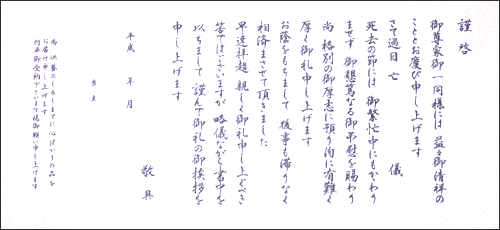 謹啓
御尊家御一同様には 益々御清祥の
こととお慶び申し上げます
さて過日 亡 儀
死去の節には 御繁忙中にもかかわり
ませず 御懇篤なる御弔慰を賜わり
尚 格別の御厚志に預り洵に有難く
厚く御礼申し上げます
お蔭をもちまして 後事も滞りなく
相済まさせて頂きました
早速拝趨 親しく御礼申し上ぐべき
筈でございますが 略儀ながら書中を
以ちまして 謹んで御礼の御挨拶を
申し上げます
敬具
平成 年 月
喪主
尚 供養のしるしまでに 心ばかりの品を
お届け申し上げました
何卒御受納下さいます様御願い申し上げます